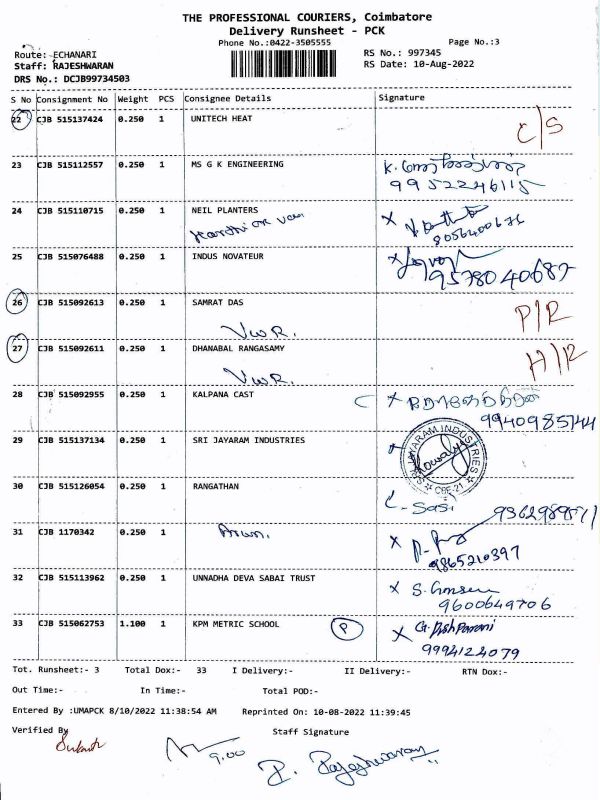 THE PROFESSIONAL COURIERS, Coimbatore
Delivery Runsheet - PCK
Phone No.:0422-3505555 Page No.:3
Route: ECHANARI RS No.: 997345
Staff: RAJESHWARAN RS Date: 10-Aug-2022
DRS No.: DCJB99734503
S No Consignment No Weight PCS Consignee Details Signature
22 CJB 515137424 0.250 1 UNITECH HEAT C/S
23 CJB 515112557 0.250 1 MS G K ENGINEERING
9952246115
24 CJB 515110715 0.250 1 NEIL PLANTERS
25 CJB 515076488 0.250 1 INDUS NOVATEUR
9578040687
26 CJB 515092613 0.250 1 SAMRAT DAS P/R
27 CJB 515092611 0.250 1 DHANABAL RANGASAMY H/R
28 CJB 515092955 0.250 1 KALPANA CAST
9940985744
29 CJB 515137134 0.250 1 SRI JAYARAM INDUSTRIES
SRI JAYARAM INDUSTRIES
CBE-21
30 CJB 515126054 0.250 1 RANGATHAN
Sasi
31 CJB 1170342 0.250 1 Arun.
9865210397
32 CJB 515113962 0.250 1 UNNADHA DEVA SABAI TRUST
9600649706
33 CJB 515062753 1.100 1 KPM METRIC SCHOOL P
9994124079
Tot. Runsheet:- 3 Total Dox:- 33 I Delivery:- II Delivery:- RTN Dox:-
Out Time:- In Time:- Total POD:-
Entered By :UMAPCK 8/10/2022 11:38:54 AM Reprinted On: 10-08-2022 11:39:45
Verified By Staff Signature
9.00
P. Rajeshwaran